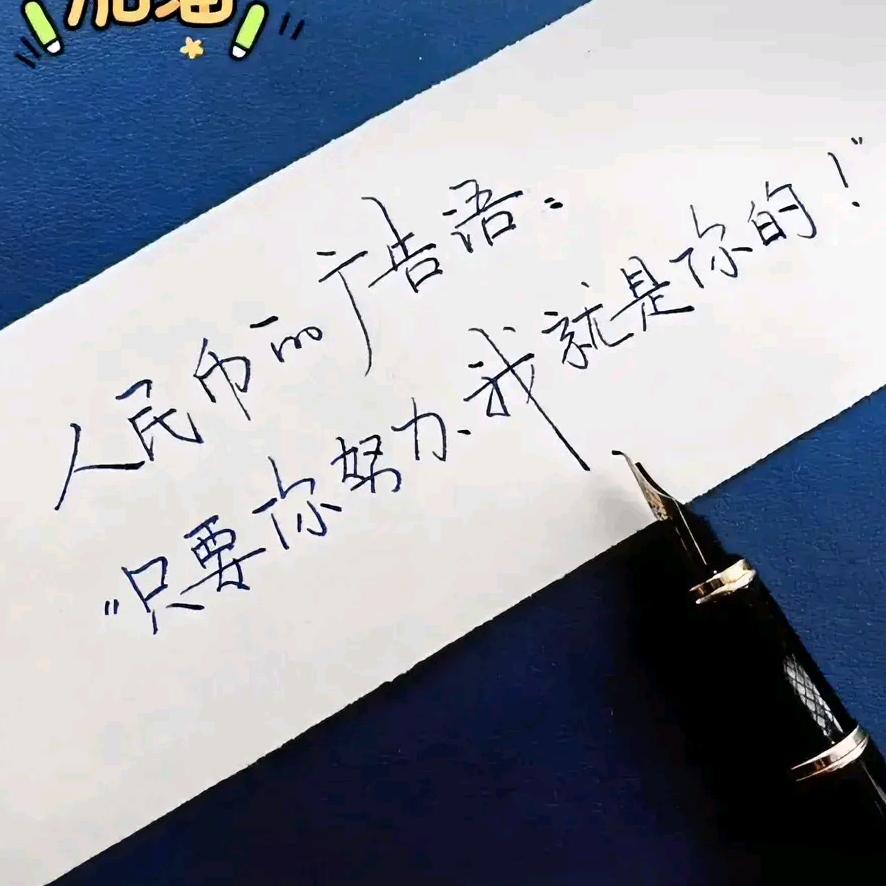 加油
人民币的广告语:
"只要你努力、我就是你的!"